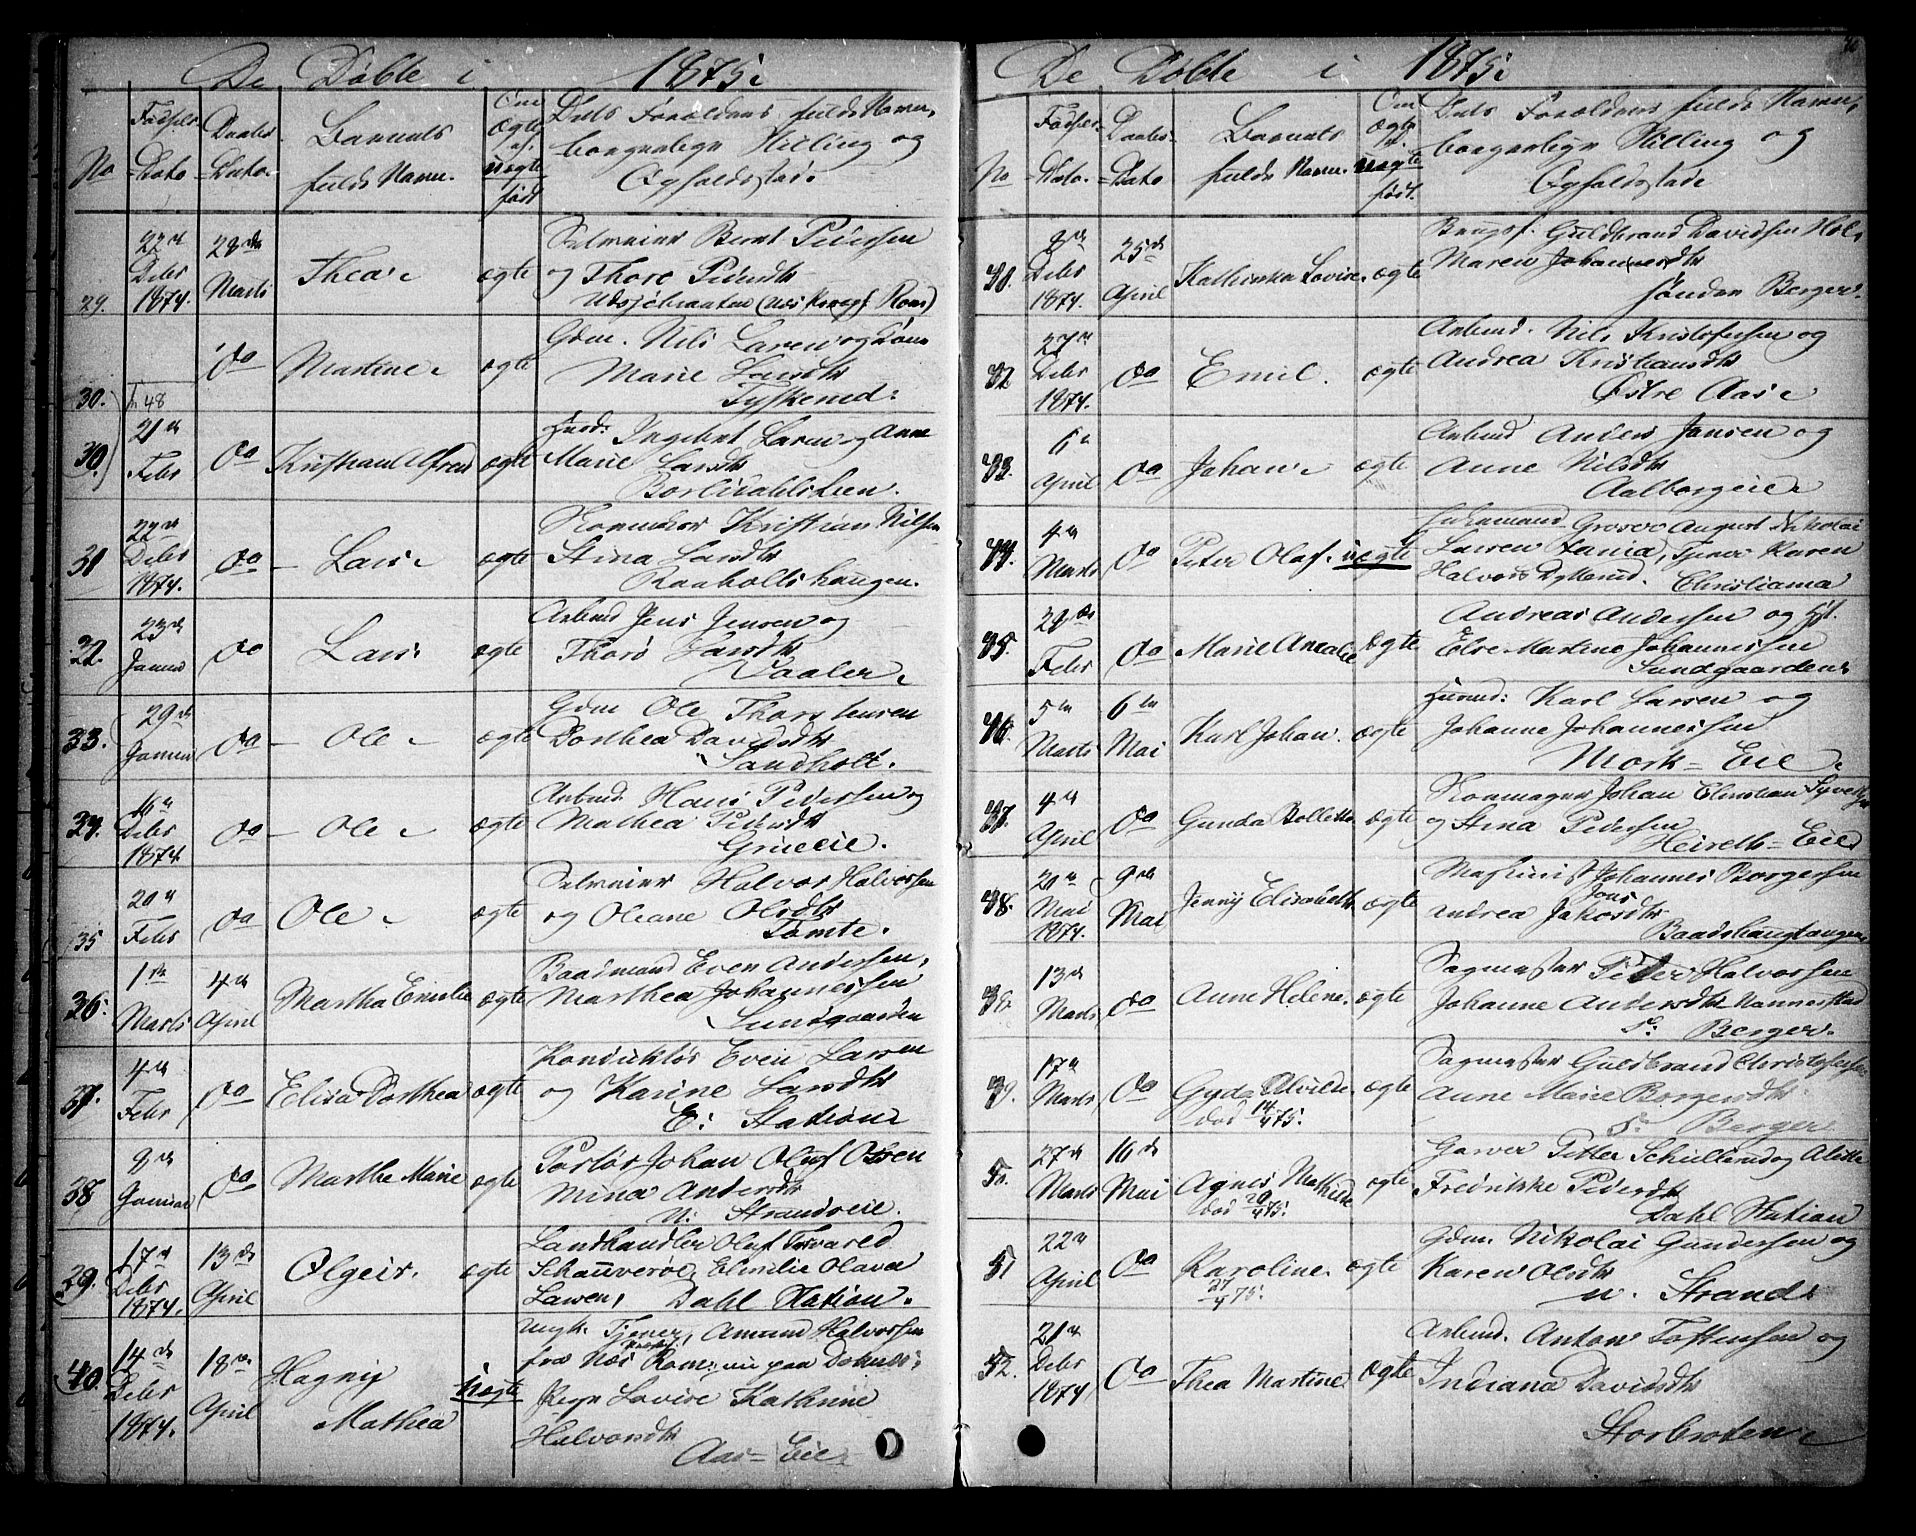 De Døbte i 1875.
No
Fødsels-
Dato
Daabs-
Dato.
Barnets
fulde Navn.
Om
ægte
el.
uægte
født
Dets Forældres fulde Navn,
borgerlige Stilling og
Opholdssted.
29.
22
Debr
1874.
28de
Marts
Thea
ægte
Bernt Pedersen
og Thore Pedersdtr
30.
n. 48
do
Martine
ægte
Gdm. Nils Larsen og
Marie Larsdtr
30.
21
Febr
do
Kristian Alfred
ægte
Ingebret Larsen og Anne
Marie Larsdtr
31
22de
Debr
1874.
do
Lars
ægte
Kristian Nilsen
Stina Larsdtr
Raaholtshaugen.
32.
23de
Januar
do
Lars
ægte
Arbmd Jens Jensen og
Thore Larsdtr
Vaaler
33.
29de
Januar
do
Ole
ægte
Gdm Ole Thorstensen
Dorthea Davidsdtr
Sandholt.
34.
16
Debr
1874.
do
Ole
ægte
Arbmd. Hans Pedersen og
Mathea Pedersdtr
Grueeie.
35
20
Febr
do
Ole
ægte
Halvor Halvorsen
og Oleane Olsdtr
Tomte.
36.
1ste
Marts
4
April
Martha Emilie
ægte
Baadmand Even Andersen,
Marthea Johannessen
Sundgaarden
37.
4
Febr
do
Elisa Dorthea
ægte
Konduktør Even Larsen
og Karine Larsdtr
E: Station
38
8de
Januar
do
Marthe Marie
ægte
Johan Oluf Olsen
Mina Andersdtr
N: Strandseie.
39.
17
Debr
1874.
13de
April
Olgeir.
ægte
Landhandler Oluf
Schauverøe, Emilie Olava
Larsen, Dahl Station.
40.
14de
Debr
1874.
18de
April
Hagny
Mathea
uægte
Ungk. Tjener, Amund Halvorsen
fra Næs Rom:
Pige Lovise Kathrine
Halvorsdtr
Aas-Eie
De Døbte i 1875.
No
Fødsels-
Dato.
Daabs-
Dato
Barnets
fulde Navn.
Om
ægte
el.
uægte
født.
Dets Forældres fulde Navn,
borgerlige Stilling og
Opholdssted
41.
8de
Debr
1874.
25de
April
Kathinka Lovise
ægte
Guldbrand Davidsen
Maren Johannesdtr
søndre Berger.
42
27
Debr
1874.
do
Emil.
ægte
Arbmd. Nils Kristofersen og
Andrea Kristiansdtr
Østre Aas
43.
6
April
do
Johan
ægte
Arbmd Anders Jansen og
Anne Nilsdtr
Aalborgeie
44.
4
Marts
do
Peter Olaf.
uægte
August Nikolai
Larsen Tjener Karen
Halvors Christiania
45.
28de
Febr
do
Marie Amalie
ægte
Andreas Andersen og
Else Martine Johannessen
Sundgaarden
46.
5te
Marts
6te
Mai
Karl Johan.
ægte
Karl Larsen og
Johanne Johannessen
Mork-Eie
47.
4
April
do
Gunda Bollette
ægte
Johan Christian
og Stina Pedersen
48.
20
Mai
1874.
9de
Mai
Jenny Elisabeth
ægte
Maskinist Johannes Borgersen
Jons
Andrea Jakobsdtr
38.
13de
Marts
do
Anne Helene.
ægte
Sagmester Peter Halvorsen
Johanne Andersdtr Nannestad
S: Berger.
39.
17
Marts
do
Gyda Alvilde
død 14/4 75.
ægte
Sagmester Guldbrand Christofersen
Anne Marie Borgersdtr
S. Berger
50.
27de
Marts
16de
Mai
Agnes Mathilde
død 20/4 75.
ægte
Garver Petter
Fredrikke Pedersdtr
Dahl Station
51
22
April
do
Karoline.
27/4 75.
ægte
Gdm. Nikolai Gundersen og
Karen Olsdtr
N. Strand
52.
21
Debr
1874
do
Thea Martine
ægte
Arbmd. Anton Tostensen og
Indiana Davidsdtr
Storbraten